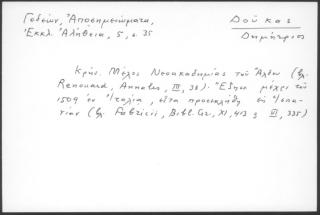 Γεδεών, Ἀποσημειώματα,
Ἐκκλ. Ἀλήθεια, 5, σ. 35
Δούκας
Δημήτριος
Κρὴς. Μέλος Νεοακαδημίας τοῦ Ἄλδου (βλ.
Renouard, Annales, III, 38). Ἔδησε μέχρι τοῦ
1509 ἐν Ἰταλίᾳ, εἶτα προσεκλήθη εἰς Ἱσπα-
νίαν (βλ. Fabricii, Bibl. Gr., XI, 413 ς VI, 335)